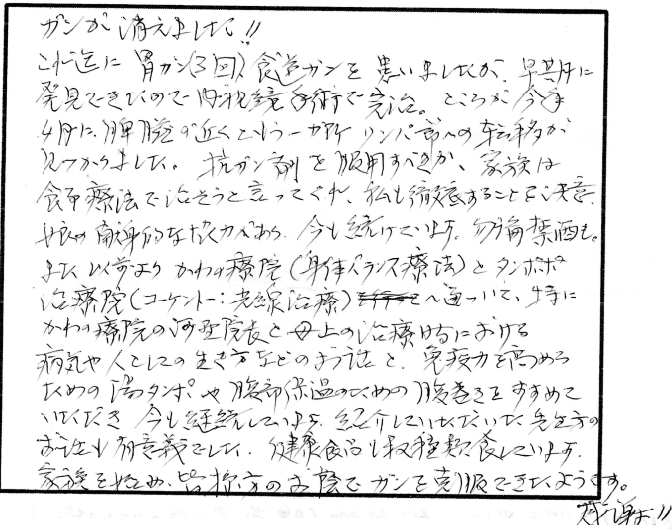 ガンが消えました!!
これ迄に胃ガン(3回)、食道ガンを患いましたが、早期に
発見できたので内視鏡手術で完治。ところが今年
4月に、脾臓の近くともう一か所リンパ節への転移が
見つかりました。抗ガン剤を服用すべきか、家族は
食事療法で治そうと言ってくれ、私も徹底することを決意。
娘の献身的な協力があり、今も続けています。勿論禁酒も。
また以前より かわの療院(身体バランス療法)とタンポポ
治療院(コーケントー:光線治療)へ通っていて、特に
かわの療院の河野院長と母上の治療時における
病気や人としての生き方などのお話と、免疫力を高める
ための湯タンポや腹部保温のための腹巻きをすすめて
いただき 今も継続しています。紹介していただいた先生方の
お話も有意義でした。健康食品も数種類食しています。
家族を始め、皆様方のお蔭でガンを克服できたようです。
感謝!!